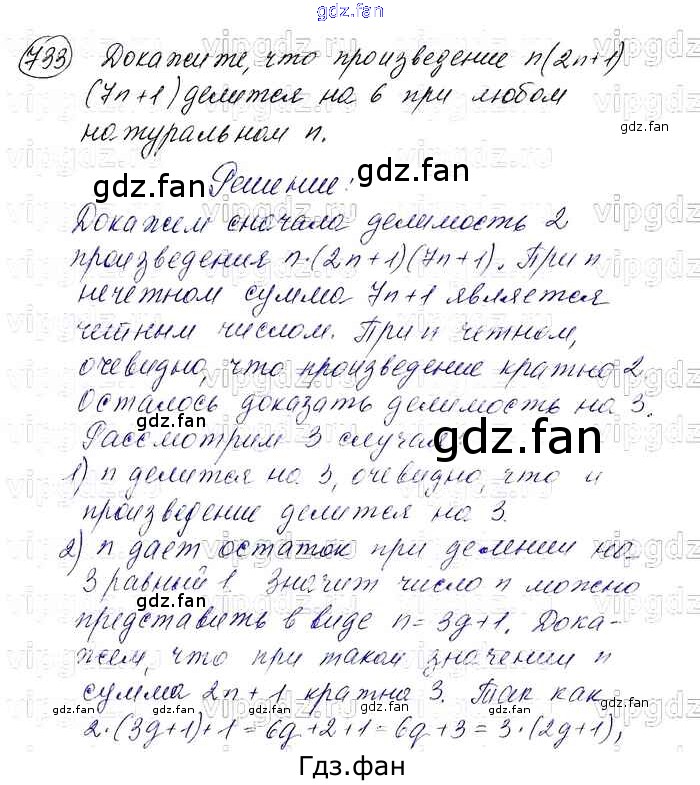 gdz.fan
733 Докажите, что произведение n(2n+1)
(7n+1) делится на 6 при любом
gdz.fan
натуральном n.
gdz.fan
Решение:
Докажем сначала делимость 2
произведения n·(2n+1)(7n+1). При n
нечетном сумма 7n+1 является
четным числом. При n четном,
очевидно, что произведение кратно 2.
gdz.fan
Осталось доказать делимость на 3.
Рассмотрим 3 случая:
gdz.fan
1) n делится на 3, очевидно, что и
произведение делится на 3.
gdz.fan
2) n дает остаток при делении на
3 равный 1. Значит число n можно
gdz.fan
представить в виде n=3q+1. Дока-
gdz.fan
жем, что при таком значении n
сумма 2n+1 кратна 3. Так как
gdz.fan gdz.fan gdz.fan
2·(3q+1)+1=6q+2+1=6q+3=3·(2q+1),
Гдз.фан